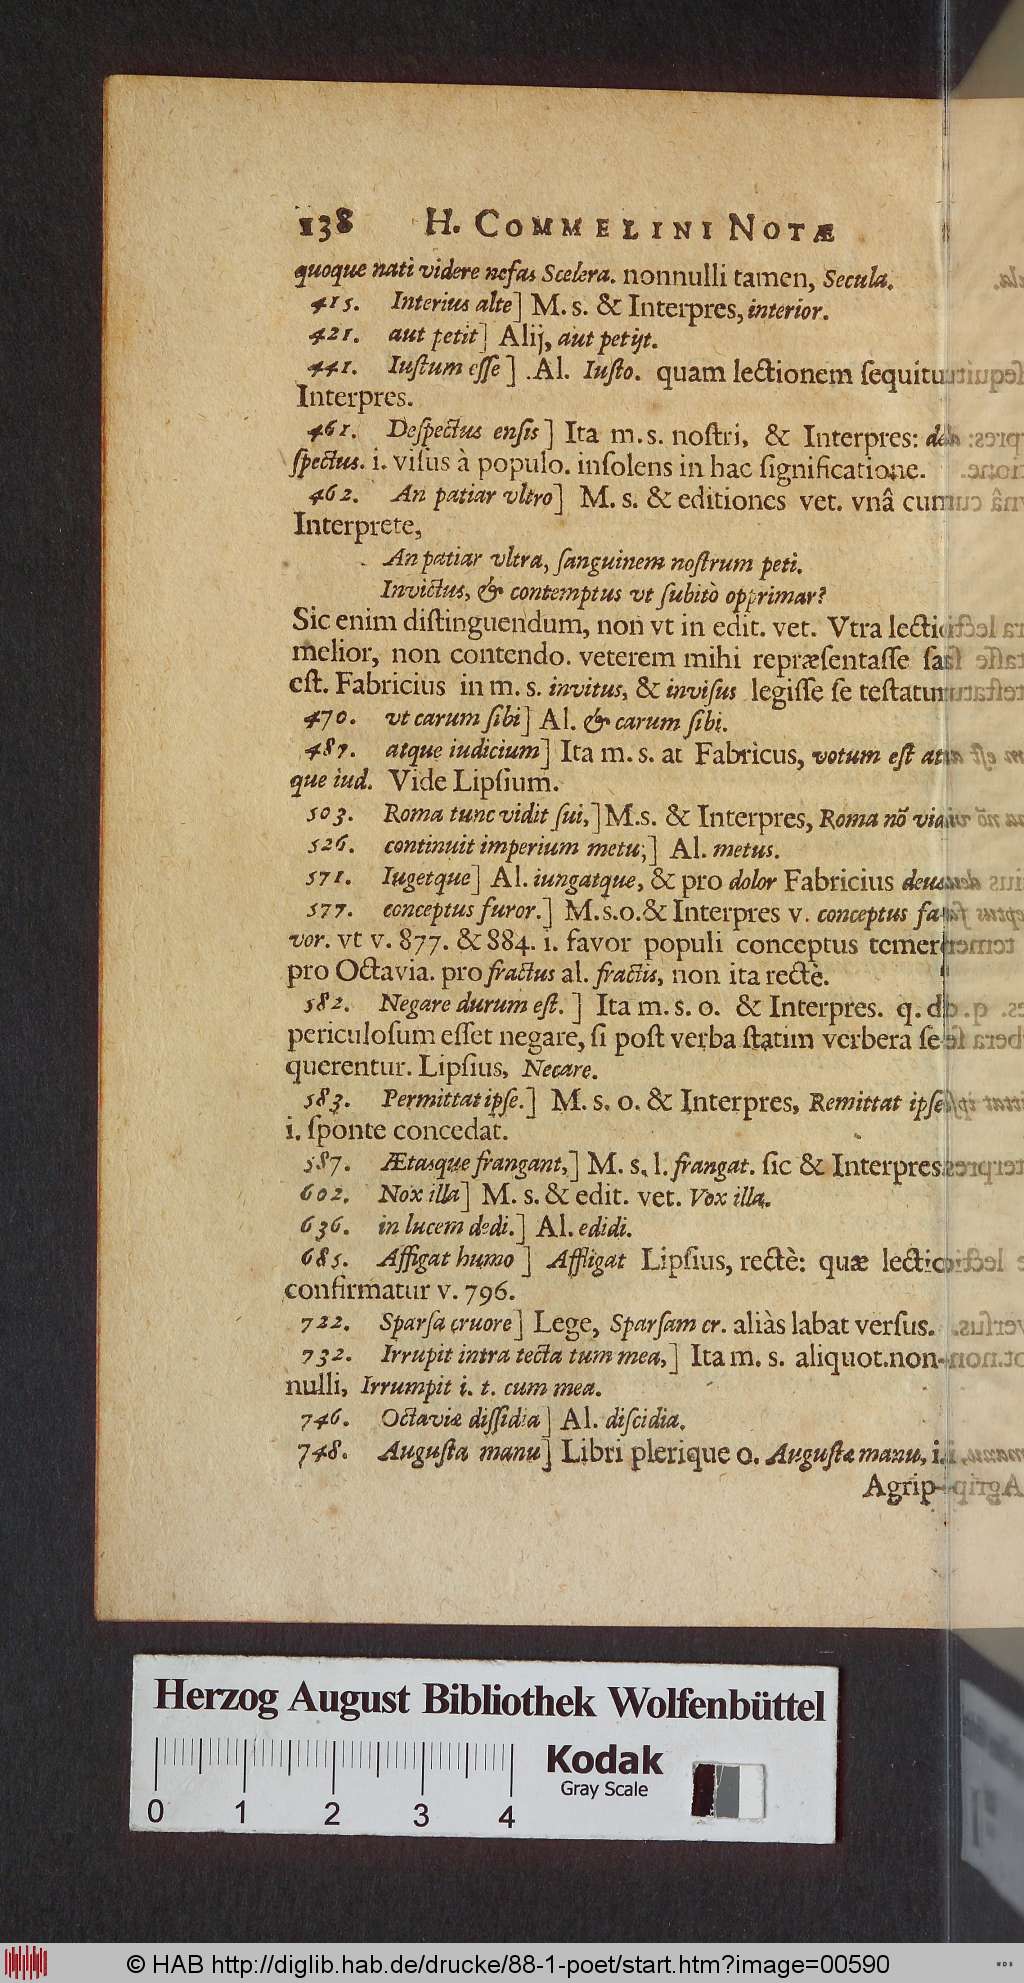 138 H. COMMELINI NOTÆ
quoque nati videre nefas Scelera. nonnulli tamen, Secula.
415. Interius alte] M. s. & Interpres, interior.
421. aut petit] Alij, aut petijt.
441. Iustum esse] Al. Iusto. quam lectionem sequitur
Interpres.
461. Despectus ensis] Ita m. s. nostri, & Interpres: de-
spectus. i. visus à populo. insolens in hac significatione.
462. An patiar vltro] M. s. & editiones vet. vnâ cum
Interprete,
An patiar vltra, sanguinem nostrum peti.
Invictus, & contemptus vt subitò opprimar?
Sic enim distinguendum, non vt in edit. vet. Vtra lectio
melior, non contendo. veterem mihi repræsentasse sat
est. Fabricius in m. s. invitus, & invisus legisse se testatur.
470. vt carum sibi] Al. & carum sibi.
487. atque iudicium] Ita m. s. at Fabricus, votum est at-
que iud. Vide Lipsium.
503. Roma tunc vidit sui,] M.s. & Interpres, Roma nõ
526. continuit imperium metu;] Al. metus.
571. Iugetque] Al. iungatque, & pro dolor Fabricius deus.
577. conceptus furor.] M.s.o.& Interpres v. conceptus fa-
vor. vt v. 877. & 884. i. favor populi conceptus temerè
pro Octavia. pro fractus al. fractis, non ita rectè.
582. Negare durum est.] Ita m. s. o. & Interpres. q. d.
periculosum esset negare, si post verba statim verbera se-
querentur. Lipsius, Necare.
583. Permittat ipse.] M. s. o. & Interpres, Remittat ipse
i. sponte concedat.
587. Ætasque frangant,] M. s. l. frangat. sic & Interpres.
602. Nox illa] M. s. & edit. vet. Vox illa.
636. in lucem dedi.] Al. edidi.
685. Affigat humo] Affligat Lipsius, rectè: quæ lectio
confirmatur v. 796.
722. Sparsa cruore] Lege, Sparsam cr. aliàs labat versus.
732. Irrupit intra tecta tum mea,] Ita m. s. aliquot. non-
nulli, Irrumpit i. t. cum mea.
746. Octaviæ dissidia] Al. discidia.
748. Augusta manu] Libri plerique o. Augustæ manu, i.
Agrip-
Herzog August Bibliothek Wolfenbüttel
Kodak
Gray Scale
0 1 2 3 4
© HAB http://diglib.hab.de/drucke/88-1-poet/start.htm?image=00590